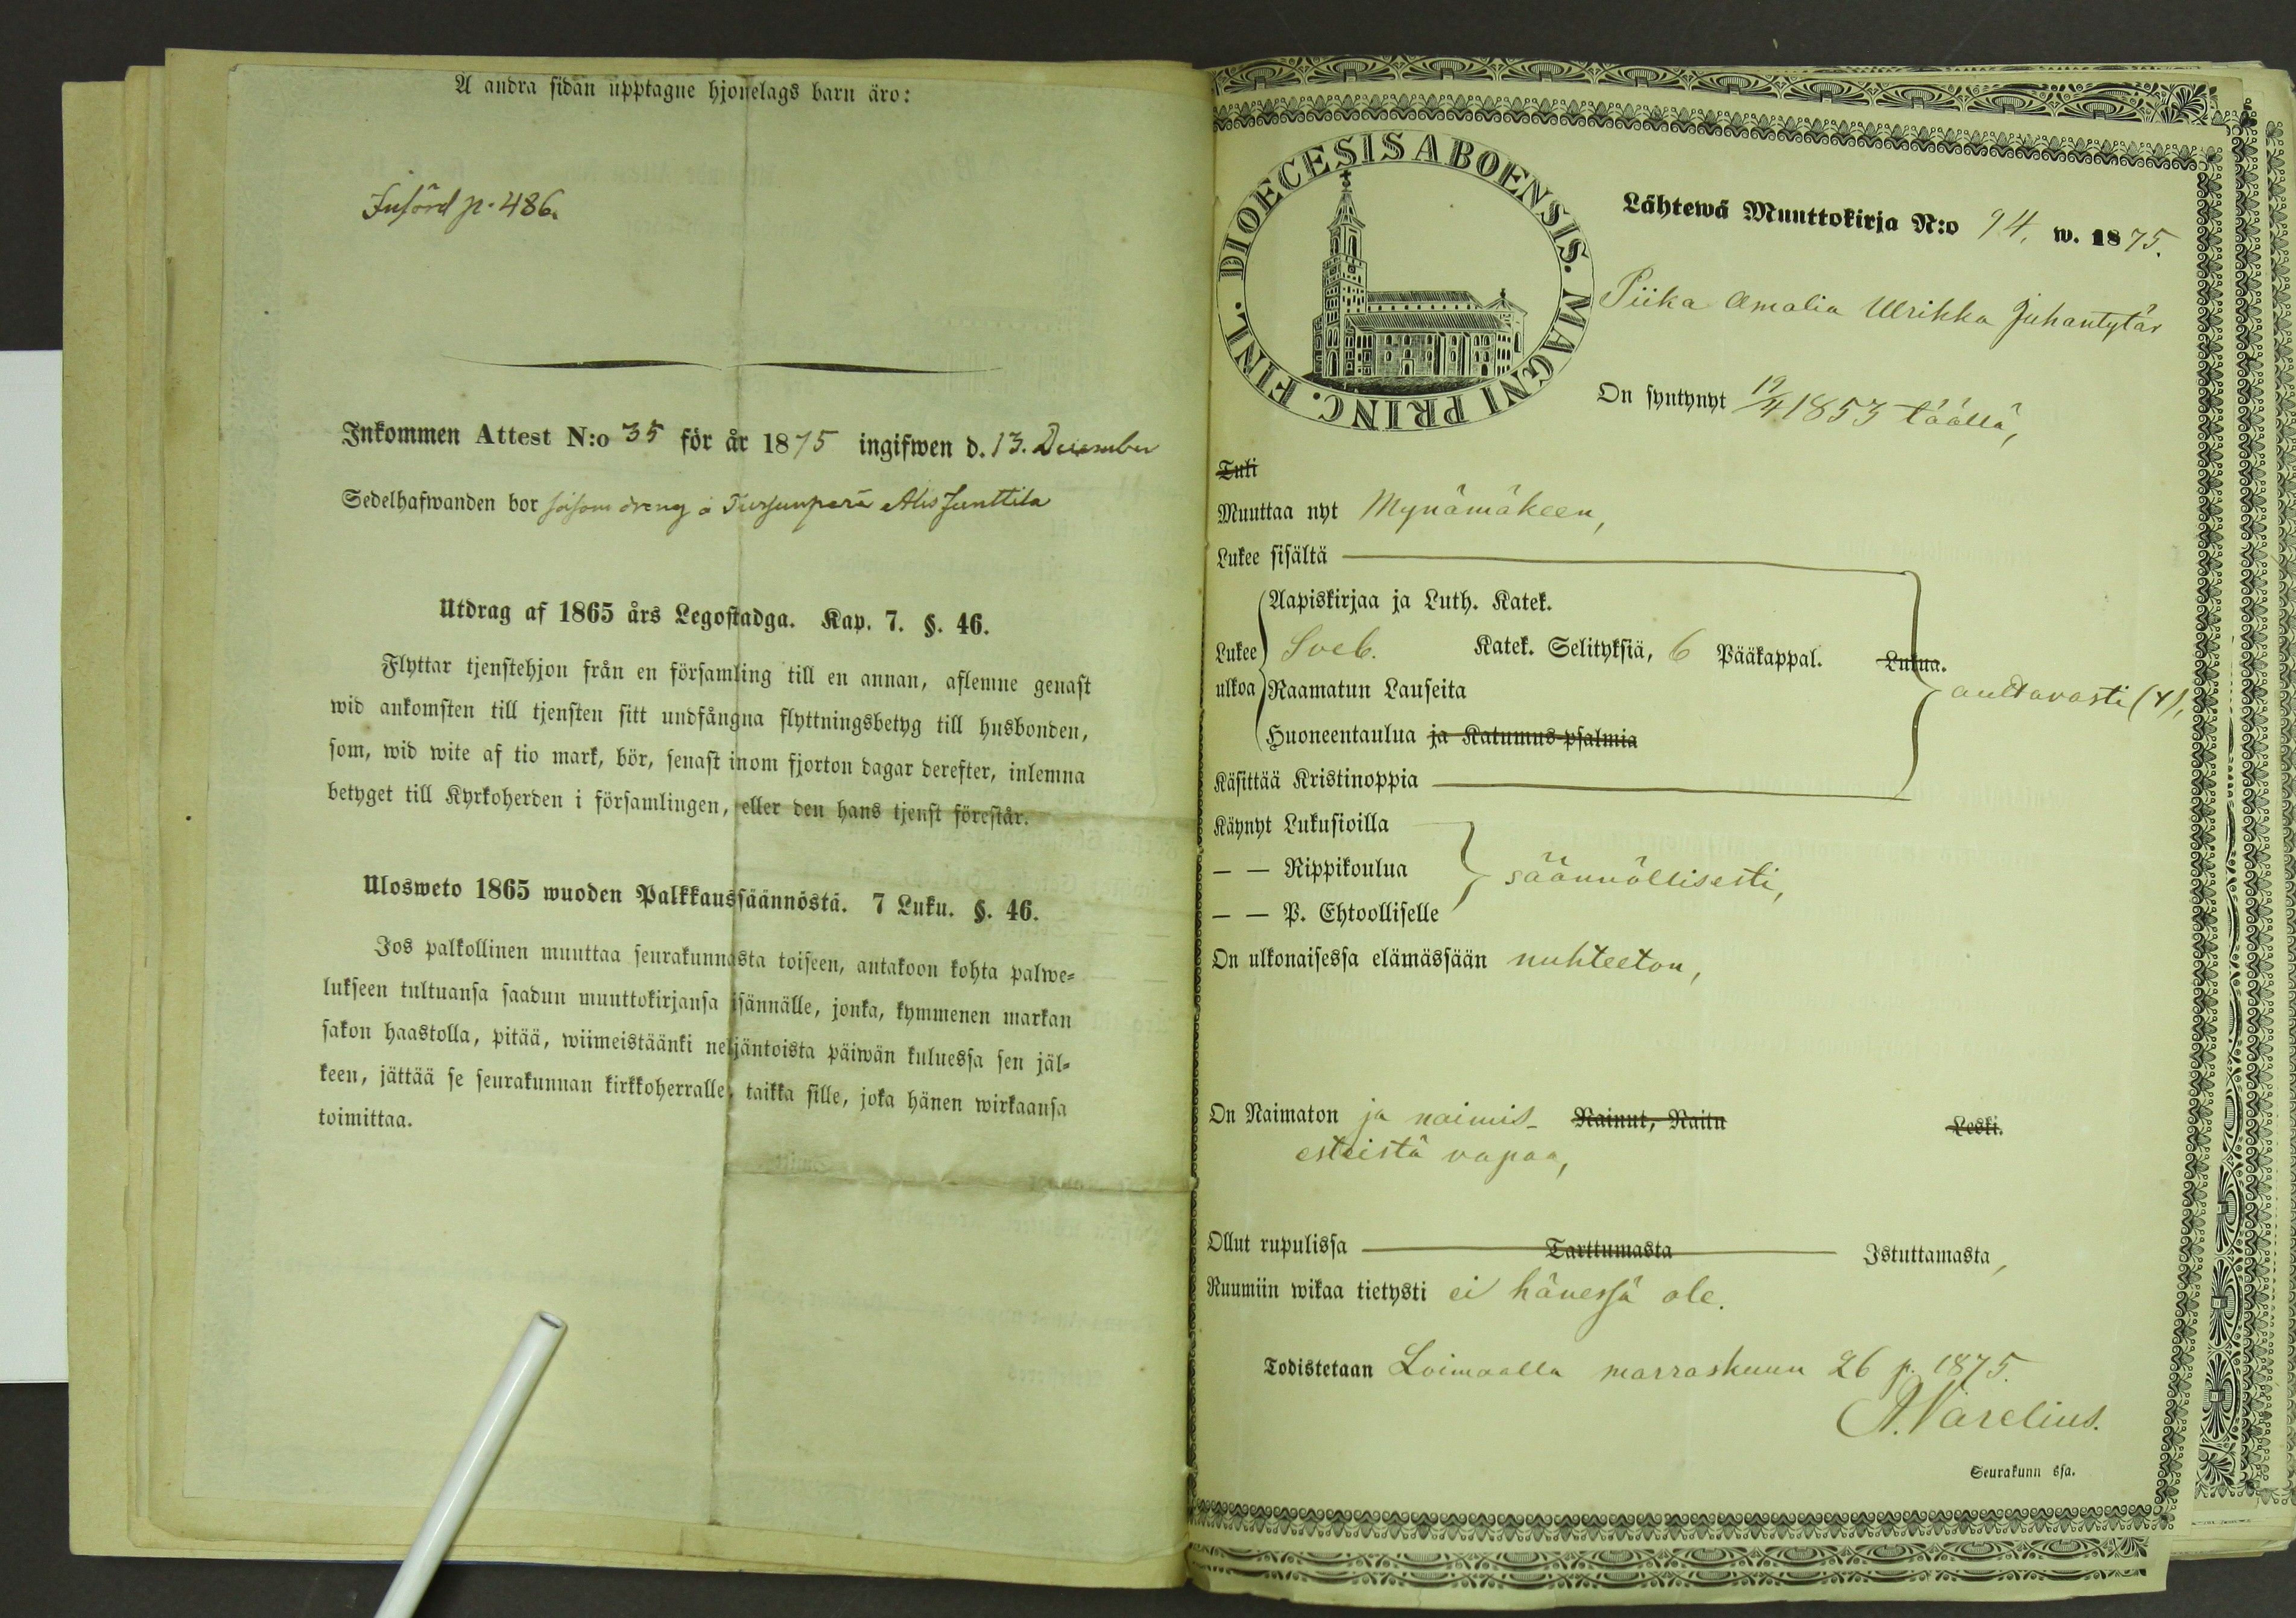 A andra sidan upptagne hjonelags barn äro:
Införd p. 486.
Inkommen Attest N:o 35 för år 1875 ingifwen d. 13. December
Sedelhafwanden bor såsom dreng å Junttila
Utdrag af 1865 års Legostadga. Kap. 7. §. 46.
Flyttar tjenstehjon från en församling till en annan, aflemne genast
wid ankomsten till tjensten sitt undfångna flyttningsbetyg till husbonden,
som, wid wite af tio mark, bör, senast inom fjorton dagar derefter, inlemna
betyget till Kyrkoherden i församlingen, eller den hans tjenst förestår.
Ulosweto 1865 wuoden Palkkaussäännöstä. 7 Luku. §. 46.
Jos palkollinen muuttaa seurakunnasta toiseen, antakoon kohta palwe-
lukseen tultuansa saadun muuttokirjansa isännälle, jonka, kymmenen markan
sakon haastolla, pitää, wiimeistäänki neljäntoista päiwän kuluessa sen jäl-
keen, jättää se seurakunnan kirkkoherralle, taikka sille, joka hänen wirkaansa
toimittaa.
DIOECESIS ABOENSIS. MAGNI PRINC. FINL.
Lähtewä Muuttokirja N:o 94. w. 1875.
Piika Amalia Ulrikka Juhantytär
On syntynyt 19/4 1853 täällä,
Tuli
Muuttaa nyt Mynämäkeen,
Lukee sisältä
Aapiskirjaa ja Luth. Katek.
Lukee Sveb. Katek. Selityksiä, 6 Pääkappal. Lukua.
ulkoa Raamatun Lauseita
auttavasti (4),
Huoneentaulua ja Katumus-psalmia
Käsittää Kristinoppia
Käynyt Lukusioilla
— — Rippikoulua säännöllisesti,
— — P. Ehtoolliselle
On ulkonaisessa elämässään nuhteeton,
On Naimaton ja naimis- Nainut, Naitu Leski.
esteistä vapaa,
Ollut rupulissa Tarttumasta Istuttamasta,
Ruumiin wikaa tietysti ei hänessä ole.
Todistetaan Loimaalla marraskuun 26 p. 1875.
A. Varelius.
Seurakunn ssa.